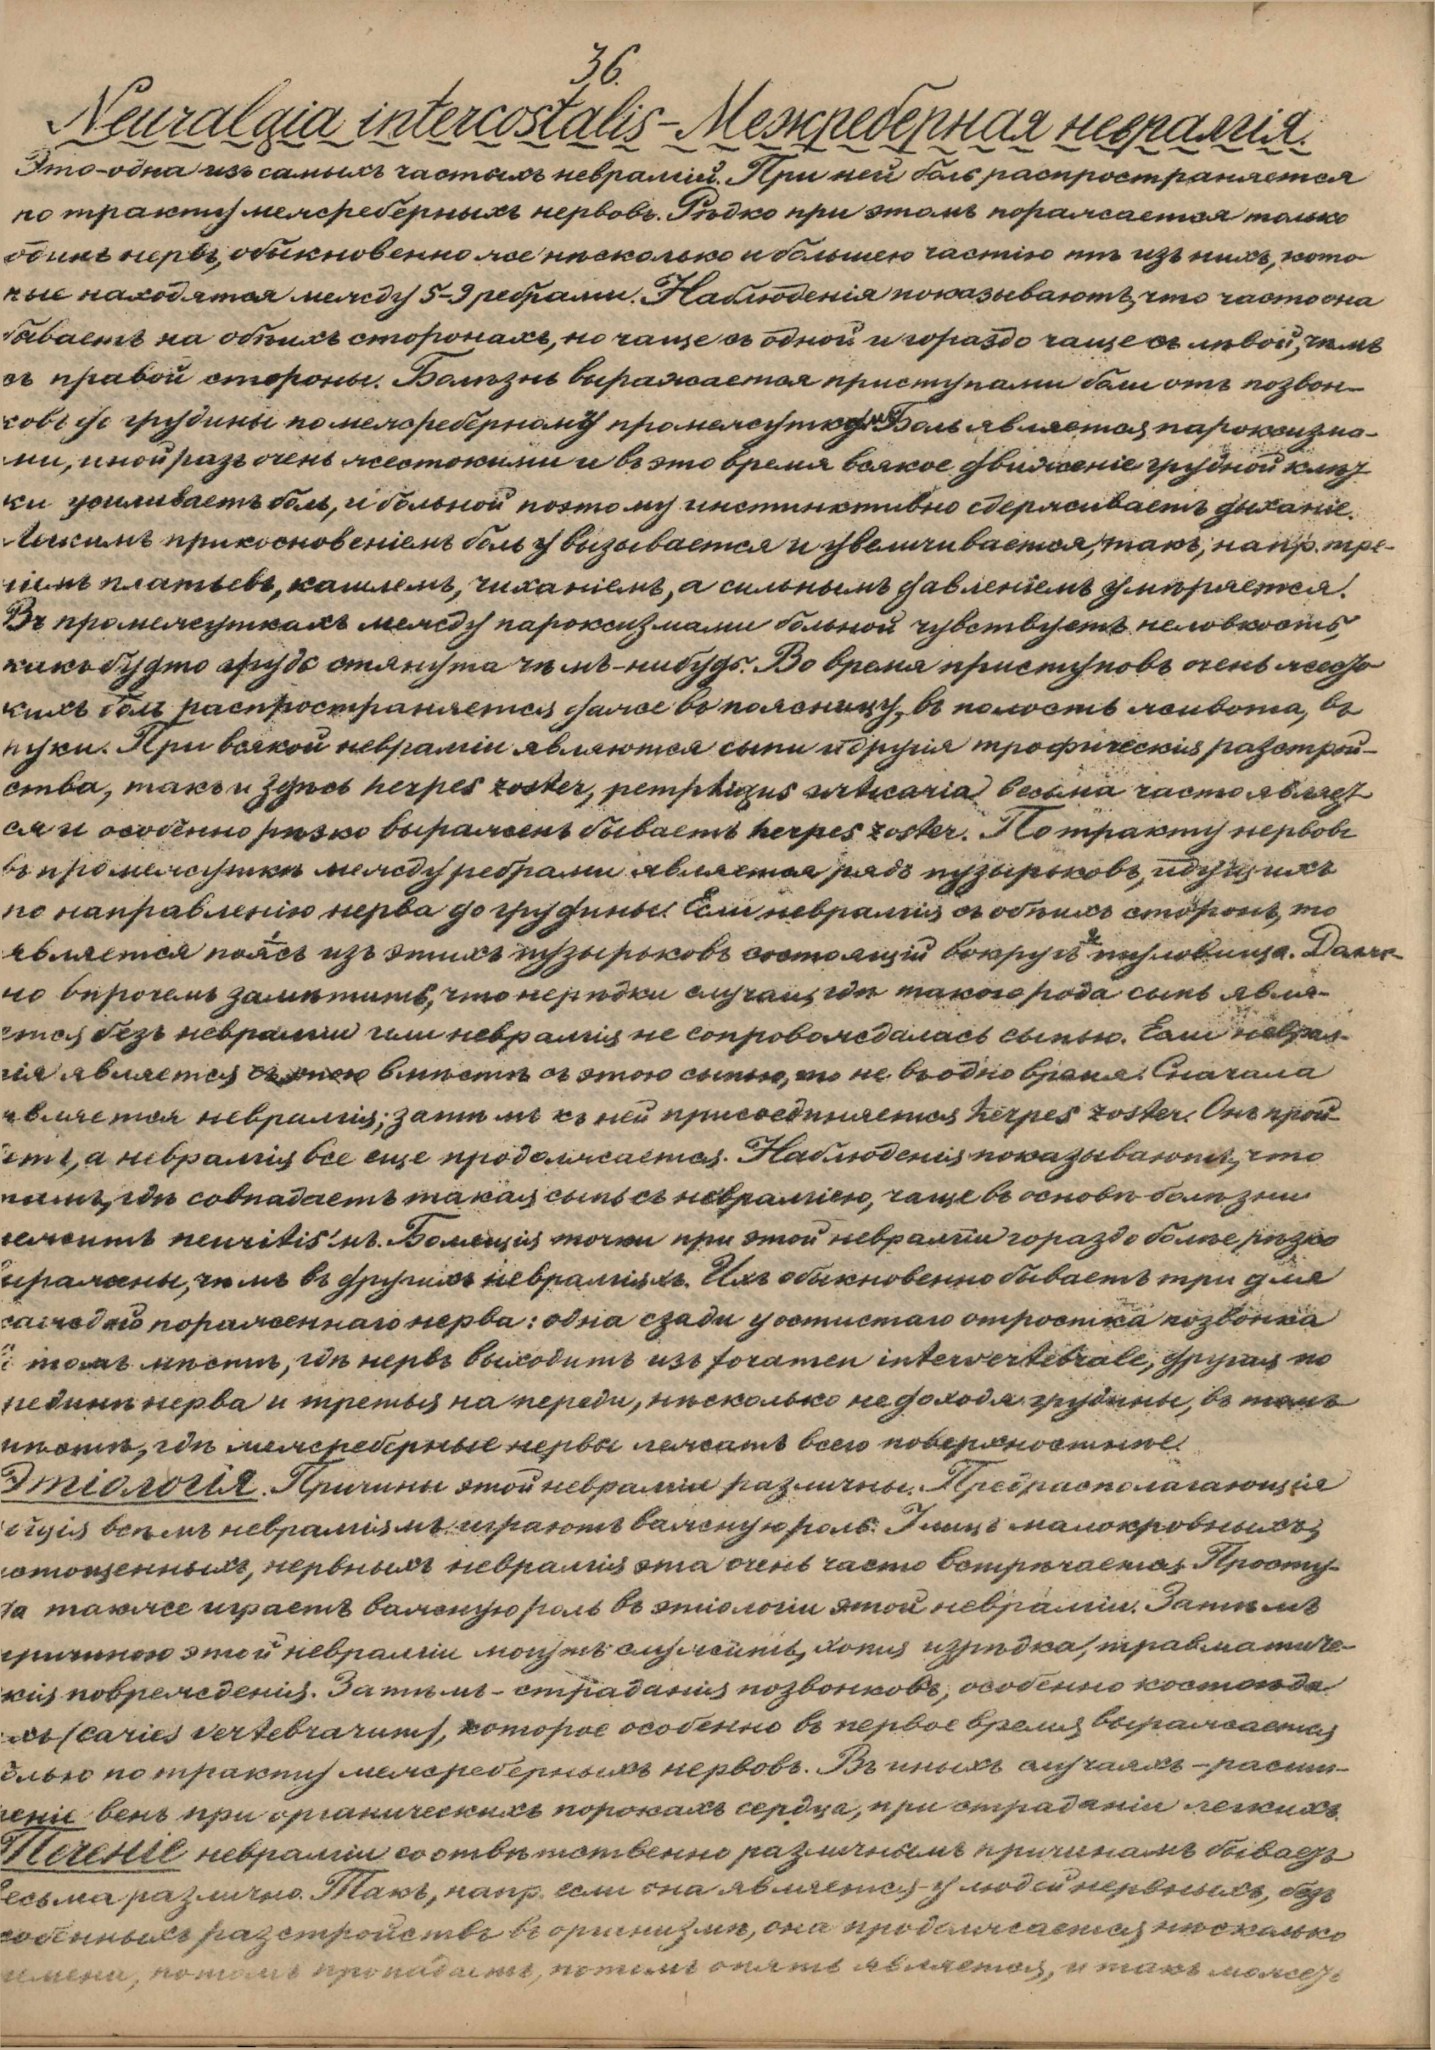 36.
Neuralgia intercostalis – Межреберная невралгія.
Это – одна изъ самыхъ частыхъ невралгій. При ней боль распространяется
по тракту межреберныхъ нервовъ. Рѣдко при этомъ поражается только
одинъ нервъ, обыкновенно же нѣсколько и большею частію тѣ изъ нихъ, кото-
рые находятся между 5–9 ребрами. Наблюденія показываютъ, что часто она
бываетъ на обѣихъ сторонахъ, но чаще съ одной и гораздо чаще съ лѣвой, чѣмъ
съ правой стороны. Болѣзнь выражается приступами боли отъ позвон-
ковъ до грудины по межреберному промежутку. Боль является пароксизма-
ми, иной разъ очень жестокими и въ это время всякое движеніе грудной клѣт-
ки усиливаетъ боль, и больной поэтому инстинктивно сдерживаетъ дыханіе.
Легкимъ прикосновеніемъ боль вызывается и увеличивается, такъ, напр. тре-
ніемъ платьевъ, кашлемъ, чиханіемъ, а сильнымъ давленіемъ умѣряется.
Въ промежуткахъ между пароксизмами больной чувствуетъ неловкость,
какъ будто грудь стянута чѣмъ-нибудь. Во время приступовъ очень жесто-
кихъ боль распространяется даже въ поясницу, въ полость живота, въ
руки. При всякой невралгіи являются сыпи и другія трофическія разстрой-
ства, такъ и здѣсь herpes zoster, pemphigus urticaria весьма часто являет-
ся и особенно рѣзко выраженъ бываетъ herpes zoster. По тракту нервовъ
въ промежуткѣ между ребрами является рядъ пузырьковъ, идущихъ
по направленію нерва до грудины. Если невралгія съ обѣихъ сторонъ, то
является поясъ изъ этихъ пузырьковъ состоящій вокругъ туловища. Должно
но впрочемъ замѣтить, что нерѣдки случаи, гдѣ такого рода сыпь явля-
ется безъ невралгіи или невралгія не сопровождалась сыпью. Если неврал-
гія является вмѣстѣ съ этою сыпью, то не въ одно время. Сначала
является невралгія; затѣмъ къ ней присоединяется herpes zoster. Онъ прой-
детъ, а невралгія все еще продолжается. Наблюденія показываютъ, что
тамъ, гдѣ совпадаетъ такая сыпь съ невралгіею, чаще въ основѣ болѣзни
лежитъ neuritis'ъ. Болящія точки при этой невралгіи гораздо болѣе рѣзко
выражены, чѣмъ въ другихъ невралгіяхъ. Ихъ обыкновенно бываетъ три для
каждаго пораженнаго нерва: одна сзади у остистаго отростка позвонка
въ томъ мѣстѣ, гдѣ нервъ выходитъ изъ foramen intervertebrale, другая по
срединѣ нерва и третья на переди, нѣсколько не доходя грудины, въ томъ
мѣстѣ, гдѣ межреберные нервы лежатъ всего поверхностнѣе.
Этіологія. Причины этой невралгіи различны. Предрасполагающія
общія всѣмъ невралгіямъ играютъ важную роль. У лицъ малокровныхъ,
истощенныхъ, нервныхъ невралгія эта очень часто встрѣчается. Просту-
да также играетъ важную роль въ этіологіи этой невралгіи. Затѣмъ
причиною этой невралгіи могутъ служить, хотя изрѣдка, травматиче-
скія поврежденія. Затѣмъ – страданія позвонковъ, особенно костоѣда
ихъ (caries vertebrarum), которое особенно въ первое время выражается
болью по тракту межреберныхъ нервовъ. Въ иныхъ случаяхъ – расши-
реніе венъ при органическихъ порокахъ сердца, при страданіи легкихъ.
Теченіе невралгіи соотвѣтственно различнымъ причинамъ бываетъ
весьма различно. Такъ, напр. если она является у людей нервныхъ, безъ
особенныхъ разстройствъ въ организмѣ, она продолжается нѣсколько
времени, потомъ пропадаетъ, потомъ опять является, и такъ можетъ